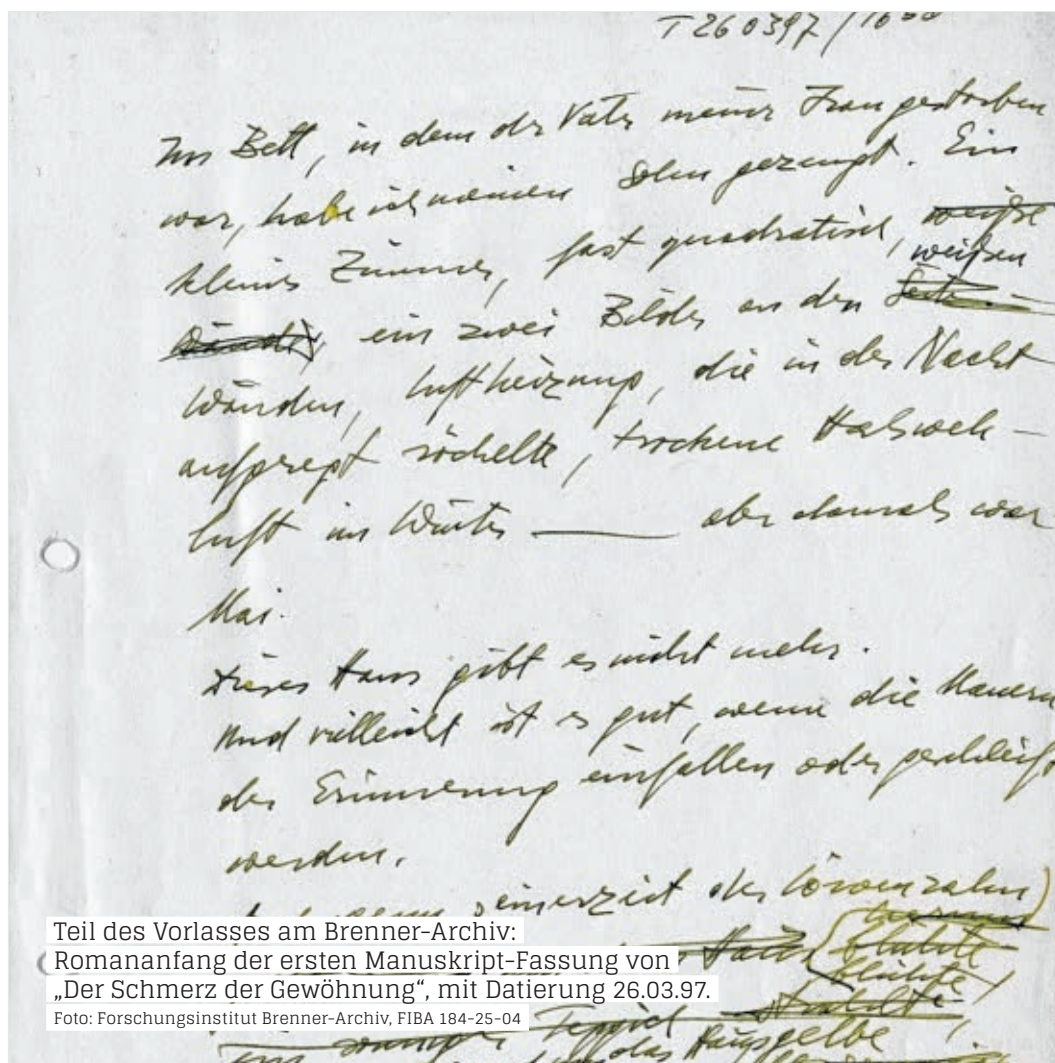 T 260397 /
Im Bett, in dem der Vater meiner Frau gestorben
war, habe ich meinen Sohn gezeugt. Ein
kleines Zimmer, fast quadratisch, weiße
weißen
Wände, ein zwei Bilder an den Seiten-
Wänden, Luftheizung, die in der Nacht
aufgeregt röchelte, trockene Halsweh-
luft im Winter — aber damals war
Mai.
Dieses Haus gibt es nicht mehr.
Und vielleicht ist es gut, wenn die Mauern
der Erinnerung einfallen oder geschleift
werden.
seinerzeit der Löwenzahn
Haus blühte
blühte
ein Teppich strahlte
das Hausgelbe
Teil des Vorlasses am Brenner-Archiv:
Romananfang der ersten Manuskript-Fassung von
„Der Schmerz der Gewöhnung“, mit Datierung 26.03.97.
Foto: Forschungsinstitut Brenner-Archiv, FIBA 184-25-04